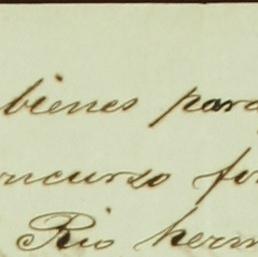 bienes para
oncurso fo
Rio herm